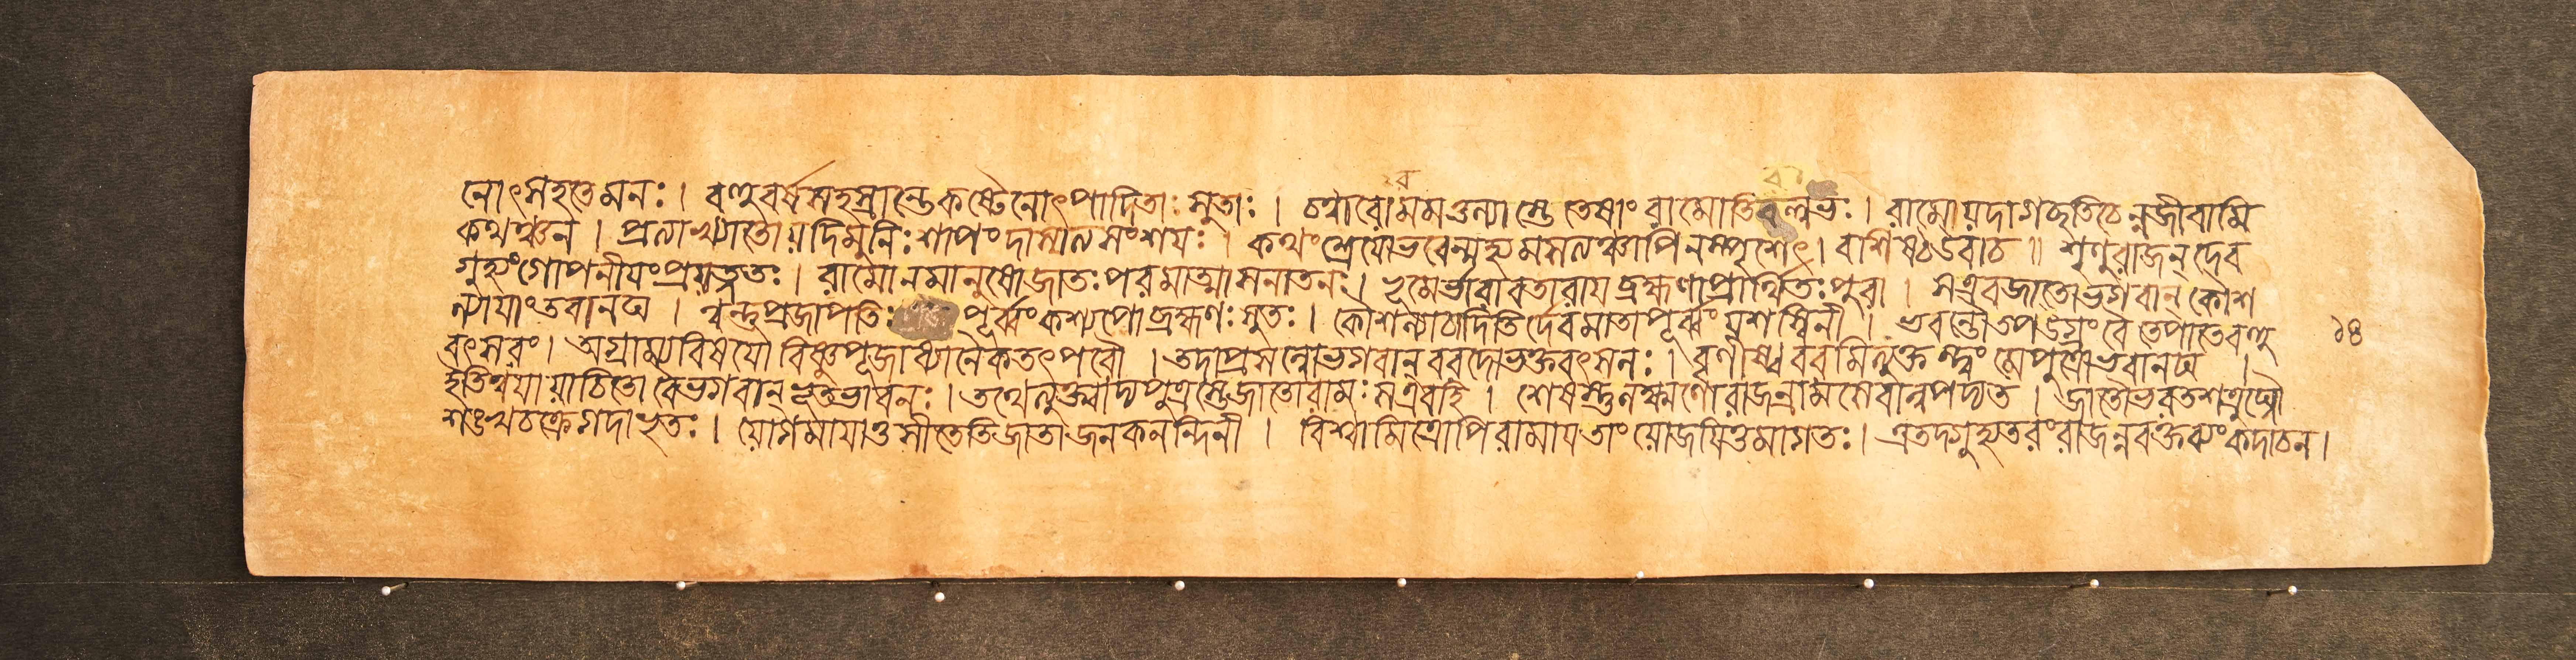 নোৎসহতেমনঃ । বহুবর্ষসহস্রান্তেকষ্টেনোৎপাদিতাঃসুতাঃ । চত্বারোমমতুল্যাস্তেতেষাংরামোতিবল্লভঃ । রামোযদাগচ্ছতিচেন্নজীবামি
কথঞ্চন । প্রত্যাখ্যাতোযদিমুনিঃশাপংদাস্যত্যসংশযঃ । কথংশ্রেযোভবেন্মহ্যমসত্যঞ্চাপিনস্পৃশেৎ । বাশিষ্ঠউবাচ ॥ শৃণুরাজন্দেব
গুহ্যংগোপনীযংপ্রযত্নতঃ । রামোনমানুষোজাতঃপরমাত্মাসনাতনঃ । ভূমের্ভারাবতারাযব্রহ্মণাপ্রার্থিতঃপুরা । সএবজাতোভগবান্কৌশ
ল্যাযাংতবানঘ । ত্বন্তুপ্রজাপতিঃ পূর্ব্বংকশ্যপোব্রহ্মণঃসুতঃ । কৌশল্যাচাদিতির্দেবমাতাপূর্ব্বংযশস্বিনী । ভবন্তৌতপউগ্রংবৈতেপাতেবহু
বৎসরং । অগ্রাম্যবিষযৌবিষ্ণুপূজাধ্যানৈকতৎপরৌ । তদাপ্রসন্নোভগবান্বরদোভক্তবৎসলঃ । বৃণীষ্ববরমিত্যুক্তস্ত্বংমেপুত্রোভবানঘ । ১৪
ইতিত্বযাযাচিতোবৈভগবান্ভূতভাবনঃ । তথেত্যুক্ত্বাদ্যপুত্রস্তেজাতোরামঃসএবহি । শেষস্তুলক্ষ্মণোরাজন্রামমেবান্বপদ্যত । জাতৌভরতশত্রুঘ্নৌ
শঙ্খচক্রেগদাভৃতঃ । যোগমাযাতুসীতেতিজাতাজনকনন্দিনী । বিশ্বামিত্রোপিরামাযতাংযোজযিতুমাগতঃ । এতদ্গুহ্যতরংরাজন্নবক্তব্যংকদাচন ।